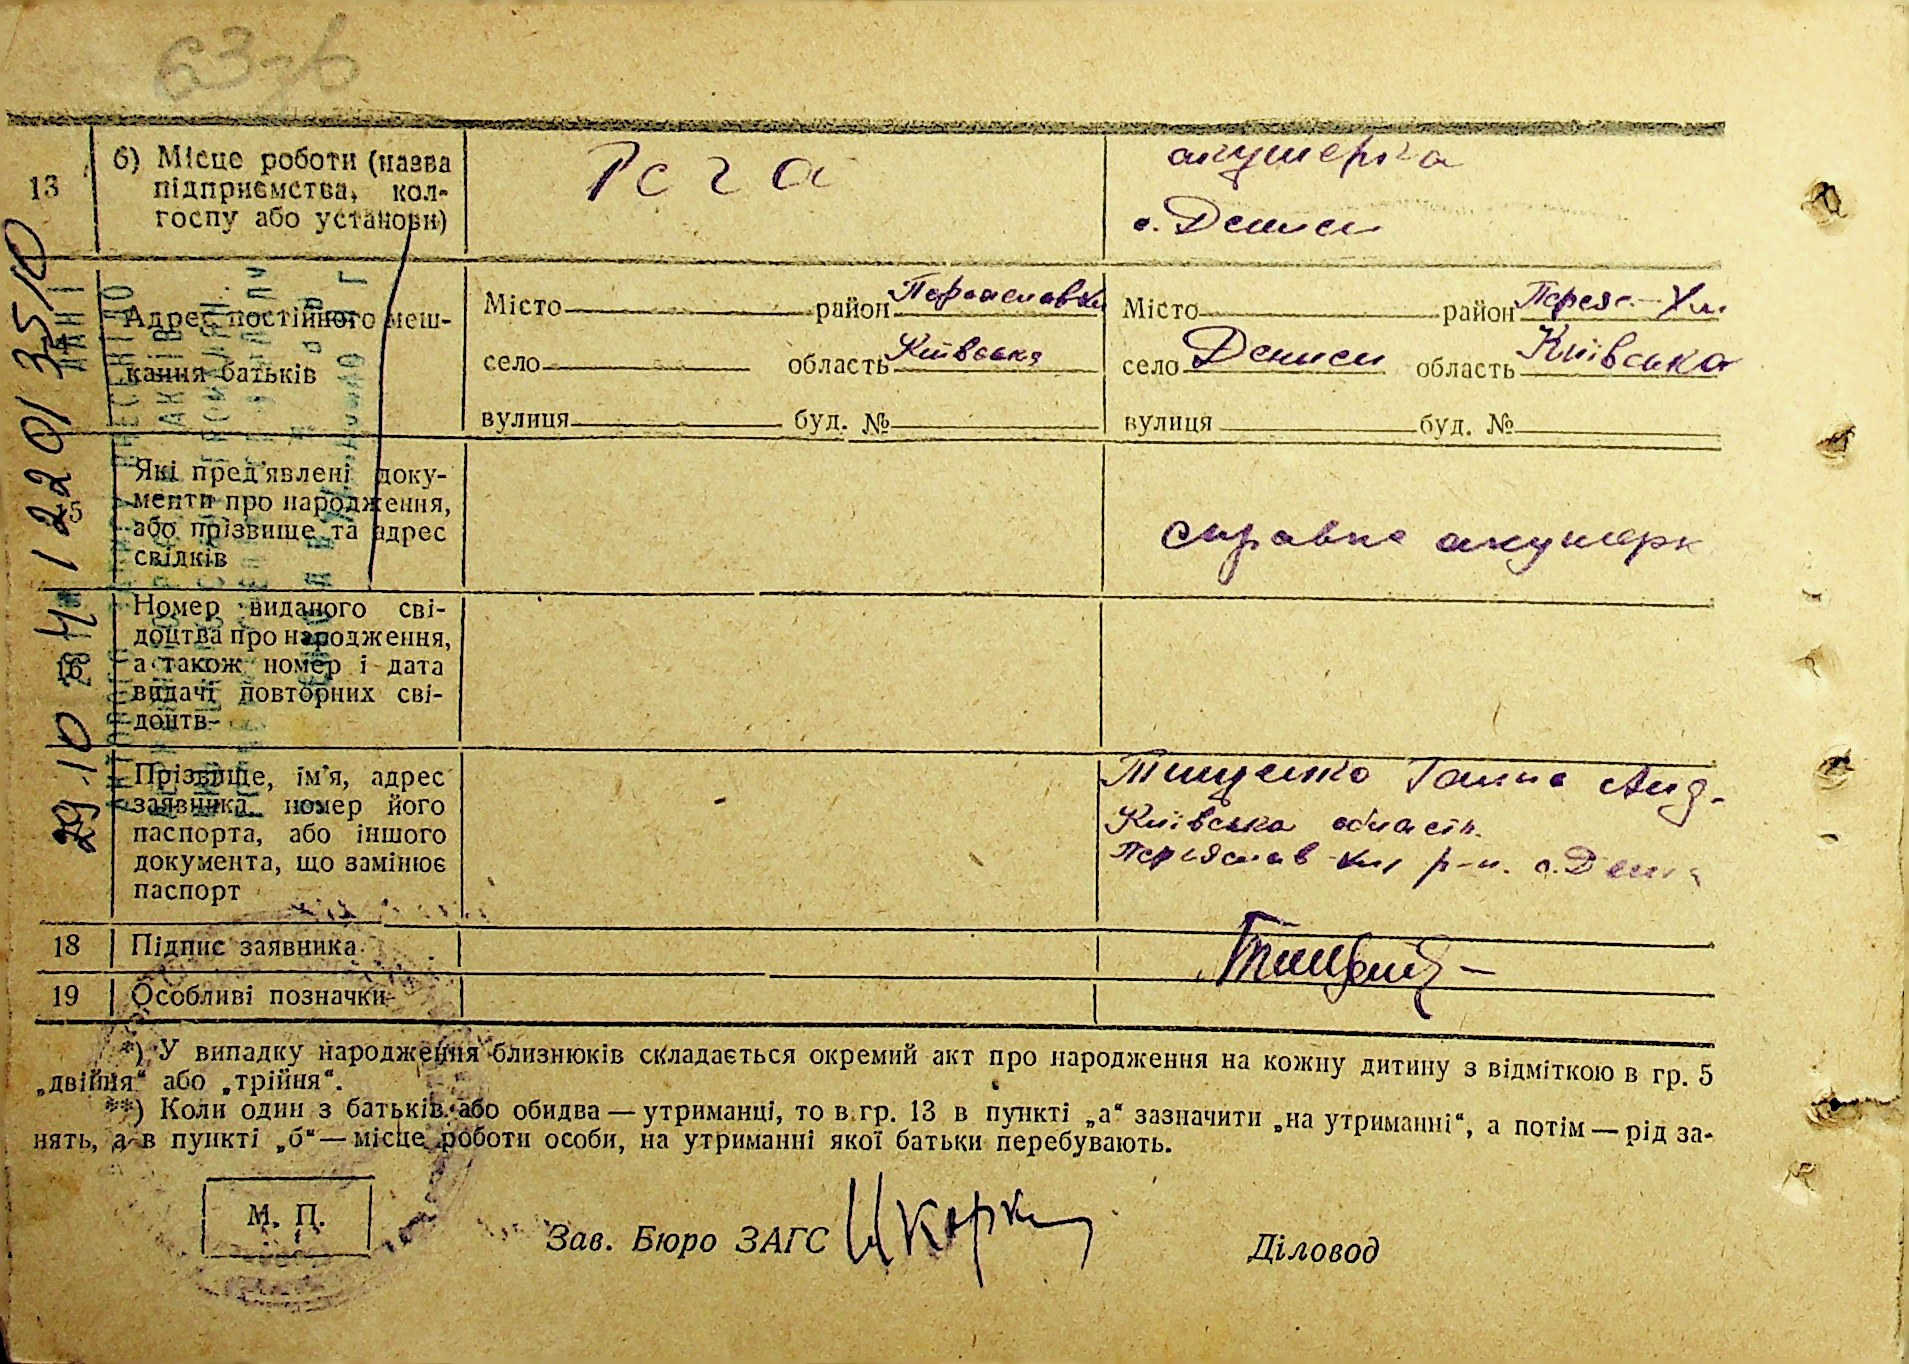 63 зв
13
б) Місце роботи (назва
підприємства, кол-
госпу або установи)
акушерка
с. Дениси
Адрес постійного меш-
кання батьків
Місто район
село область Київська
вулиця буд. №
Місто район Переяс.-Хм.
село Дениси область Київська
вулиця буд. №
15
Які пред'явлені доку-
менти про народження,
або прізвище та адрес
свідків
акушерк
16
Номер виданого сві-
доцтва про народження,
а також номер і дата
видачі повторних сві-
доцтв
Прізвище, ім'я, адрес
заявника, номер його
паспорта, або іншого
документа, що замінює
паспорт
Тищенко Ганна Анд-
Київська область
р-н. с.
18
Підпис заявника
19
Особливі позначки
*) У випадку народження близнюків складається окремий акт про народження на кожну дитину з відміткою в гр. 5
„двійня“ або „трійня“.
**) Коли один з батьків або обидва — утриманці, то в гр. 13 в пункті „а“ зазначити „на утриманні“, а потім — рід за-
нять, а в пункті „б“ — місце роботи особи, на утриманні якої батьки перебувають.
М. П.
Зав. Бюро ЗАГС
Діловод